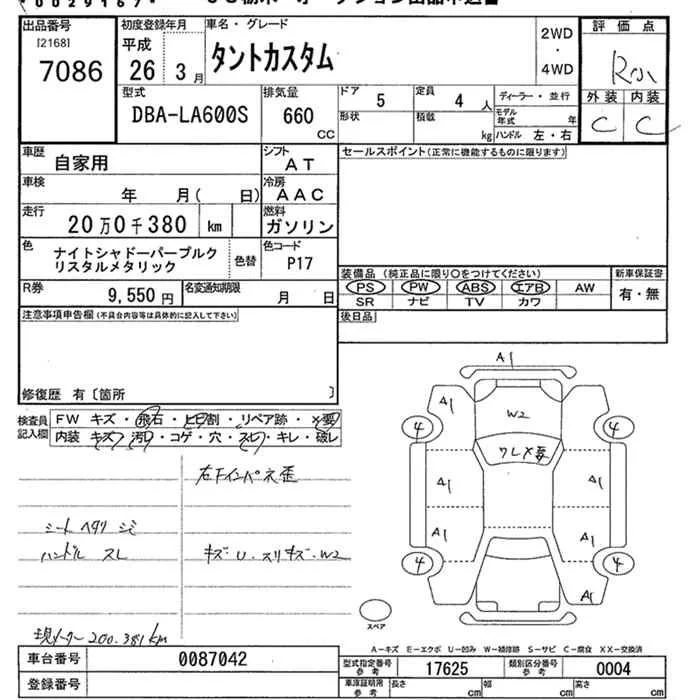 出品番号
[2168]
7086
初度登録年月
平成
26年 3月
車名・グレード
タントカスタム
2WD
・
4WD
評価点
外装 内装
C C
型式
DBA-LA600S
排気量
660
CC
ドア
5
定員
4人
形状
積載
kg
ディーラー・並行
モデル年式 年
ハンドル 左・右
車歴
自家用
シフト
AT
車検
年 月( 日)
冷房
AAC
走行
20万0千380 km
燃料
ガソリン
色
ナイトシャドーパープルク
リスタルメタリック
色替
色コード
P17
R券
9,550円
名変通知期限
月 日
セールスポイント(正常に機能するものに限ります)
装備品(純正品に限り○をつけてください)
新車保証書
PS PW ABS エアB AW
有・無
SR ナビ TV カワ
後日品
注意事項申告欄(不具合内容等は具体的に記入して下さい)
修復歴 有〔箇所 〕
検査員
記入欄
FW キズ・飛石・ヒビ割・リペア跡・×要
内装 キズ・汚れ・コゲ・穴・スレ・キレ・破レ
シート ヘタリ シミ
ハンドル スレ
キズ・U・スリキズ・W2
現メーター 200.381km
A1
A1
W2
A1
4
4
ワレ×要
A1
A1
A1
A1
4
4
A1
スペア
A-キズ E-エクボ U-凹み W-補修跡 S-サビ C-腐食 XX-交換済
車台番号
0087042
登録番号
型式指定番号
参考
17625
類別区分番号
参考
0004
車庫証明用
参考
長さ cm
幅 cm
高さ cm